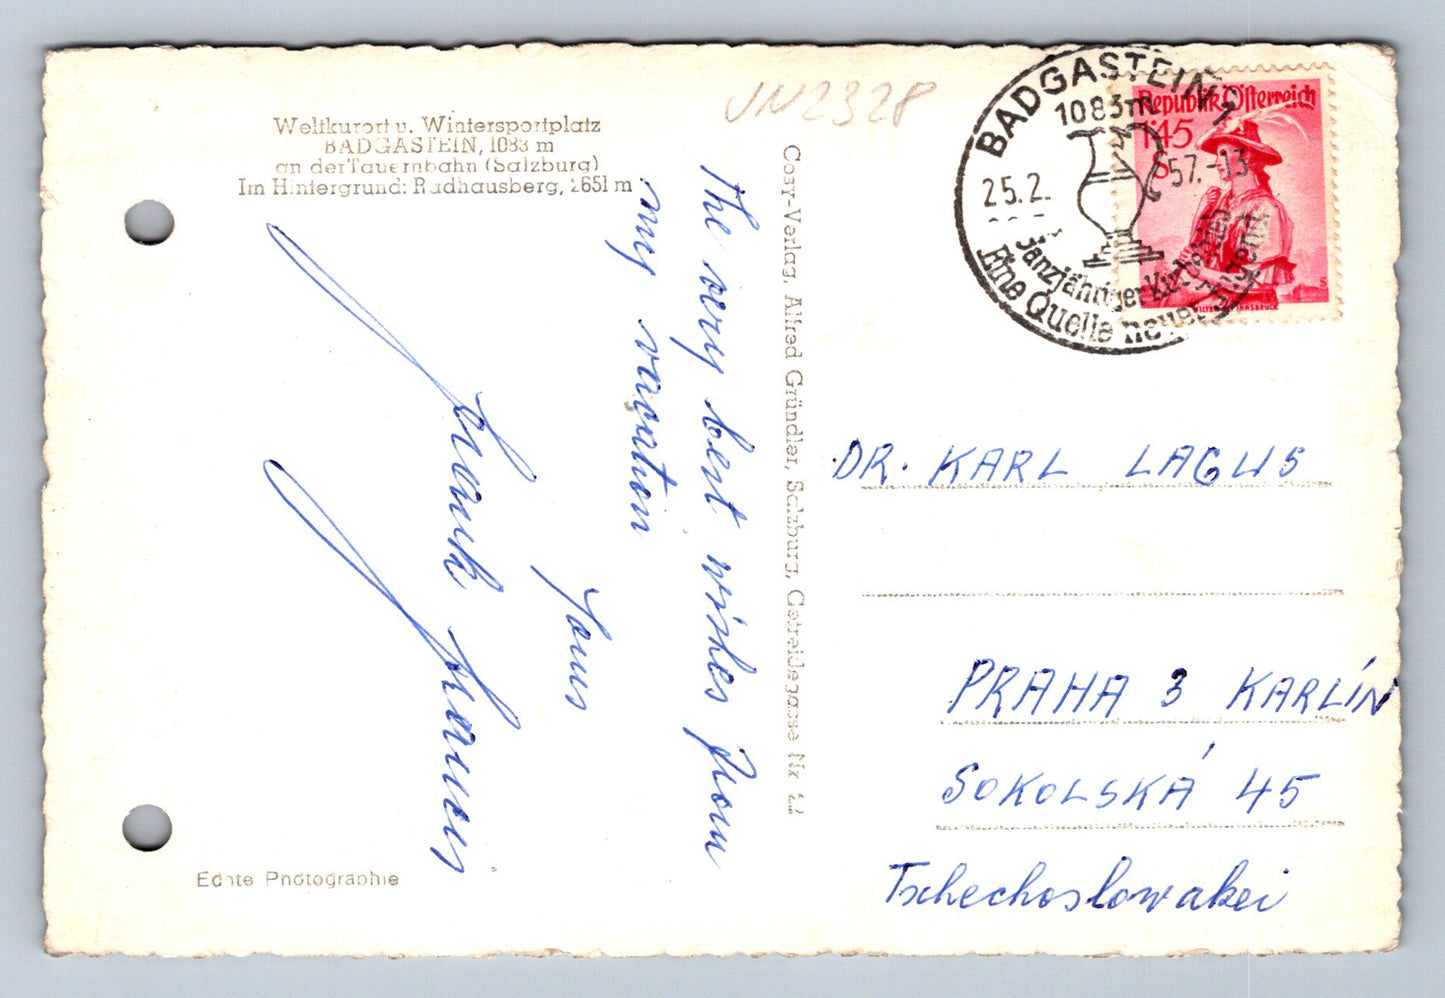 Weltkurort u. Wintersportplatz
BADGASTEIN, 1083 m
an der Tauernbahn (Salzburg)
Im Hintergrund: Radhausberg, 2651 m
The very best wishes from
my vacation
Yours
Frank
Cosy-Verlag, Alfred Gründler, Salzburg, Getreidegasse Nr. 22
Echte Photographie
JN2328
BADGASTEIN 1
1083m
25.2.57.-13
Ganzjähriger Kurbetrieb
Eine Quelle neuer Jugend
Republik Österreich
1'45
S
WILTEN INNSBRUCK
DR. KARL LAGUS
PRAHA 3 KARLÍN
SOKOLSKÁ 45
Tschechoslowakei